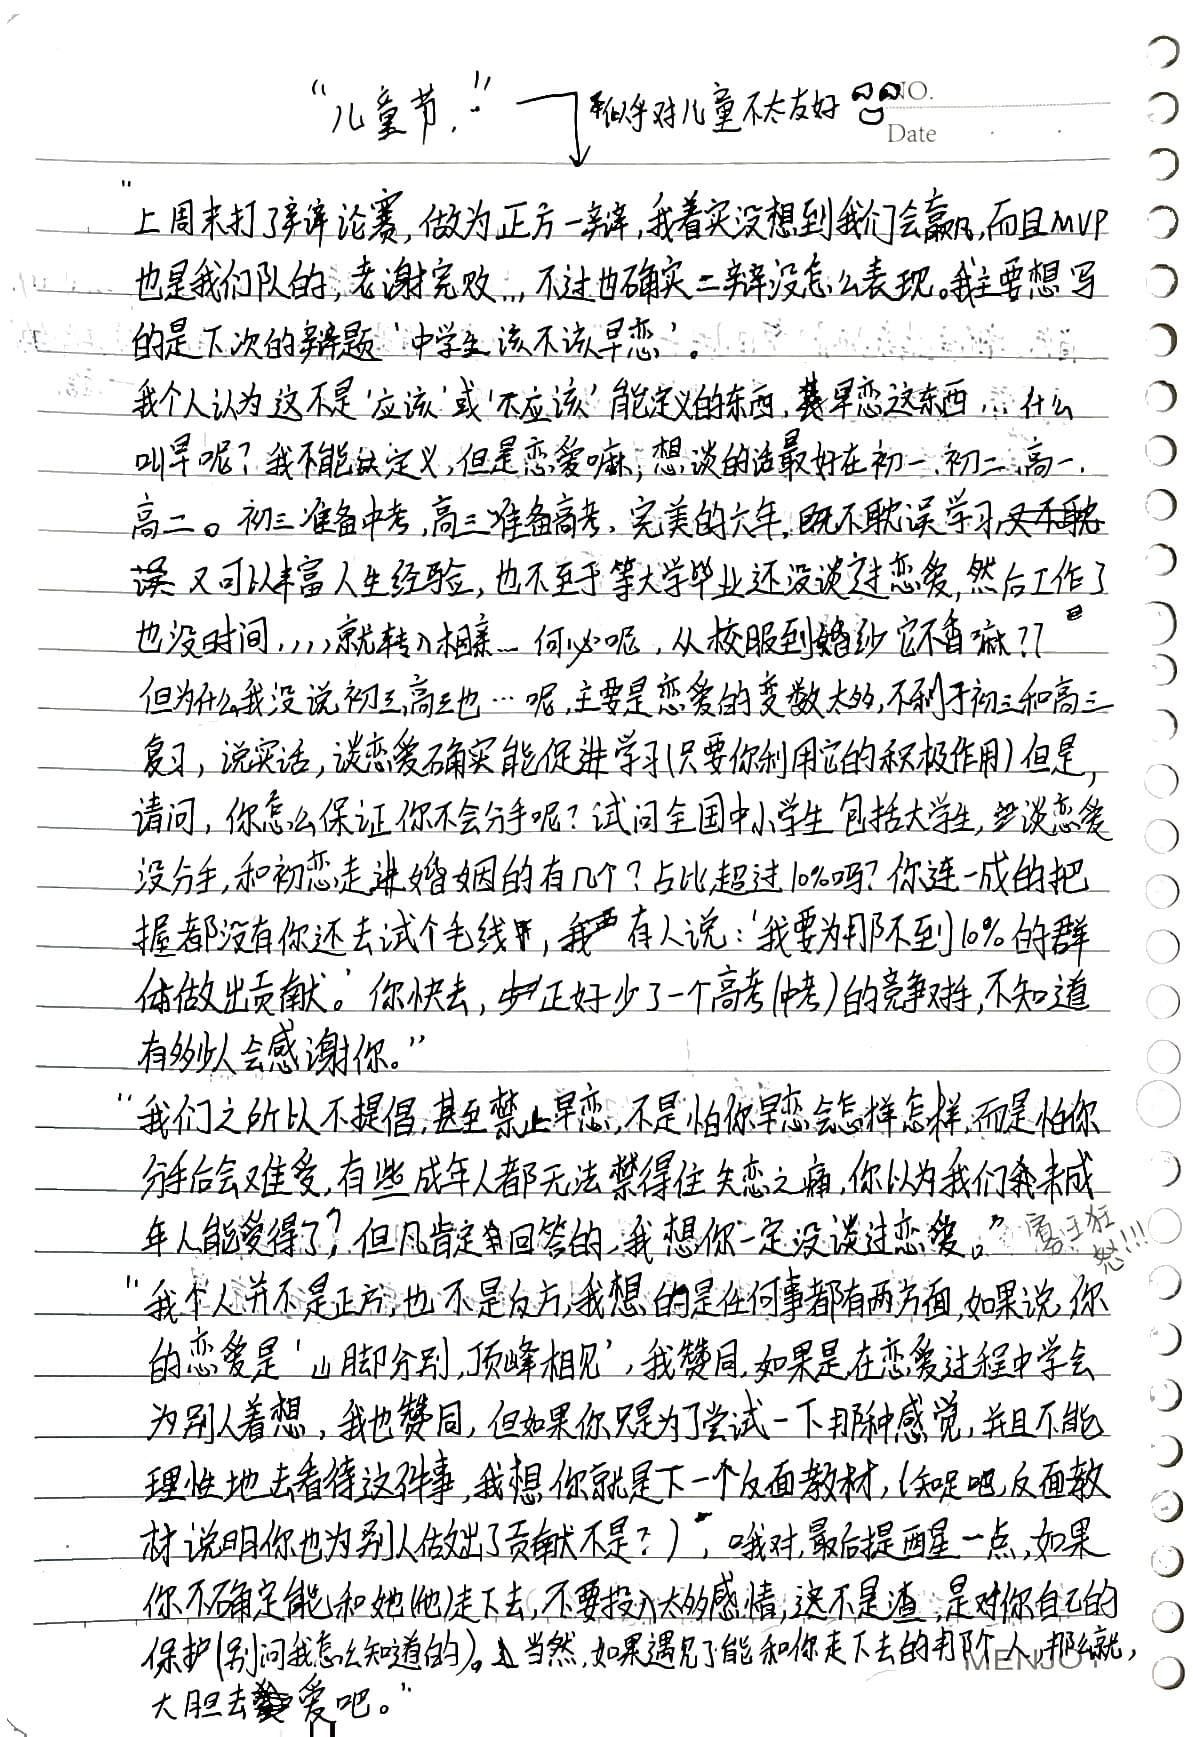 “儿童节，”
似乎对儿童不太友好
NO.
Date
“上周末打了辩论赛，做为正方一辩，我着实没想到我们会赢，而且MVP
也是我们队的，老谢完败…，不过也确实二辩没怎么表现。我主要想写
的是下次的辩题‘中学生该不该早恋’。
我个人认为这不是‘应该’或‘不应该’能定义的东西，早恋这东西…什么
叫早呢？我不能定义，但是恋爱嘛，想谈的话最好在初一、初二、高一、
高二。初三准备中考，高三准备高考，完美的六年，既不耽误学习，又不耽
误又可以丰富人生经验，也不至于等大学毕业还没谈过恋爱，然后工作了
也没时间，，，，就转入相亲…何必呢，从校服到婚纱它不香嘛？？
但为什么我没说初三、高三也…呢，主要是恋爱的变数太多，不利于初三和高三
复习，说实话，谈恋爱确实能促进学习（只要你利用它的积极作用）但是，
请问，你怎么保证你不会分手呢？试问全国中小学生包括大学生，谈恋爱
没分手，和初恋走进婚姻的有几个？占比超过10%吗？你连一成的把
握都没有你还去试个毛线，有人说：‘我要为那不到10%的群
体做出贡献。’你快去，正好少了一个高考（中考）的竞争对手，不知道
有多少人会感谢你。”
“我们之所以不提倡，甚至禁止早恋，不是怕你早恋会怎样怎样，而是怕你
分手后会难受，有些成年人都无法禁得住失恋之痛，你以为我们未成
年人能受得了？但凡肯定回答的，我想你一定没谈过恋爱。”
狂
怒!!!
“我个人并不是正方，也不是反方，我想的是任何事都有两方面，如果说你
的恋爱是‘山脚分别，顶峰相见’，我赞同，如果是在恋爱过程中学会
为别人着想，我也赞同，但如果你只是为了尝试一下那种感觉，并且不能
理性地去看待这件事，我想你就是下一个反面教材，（知足吧，反面教
材说明你也为别人做出了贡献不是？），哦对，最后提醒一点，如果
你不确定能和她（他）走下去，不要投入太多感情，这不是渣，是对你自己的
保护（别问我怎么知道的）。当然，如果遇见了能和你走下去的那个人，那么就，
MENJOY
大胆去爱吧。”